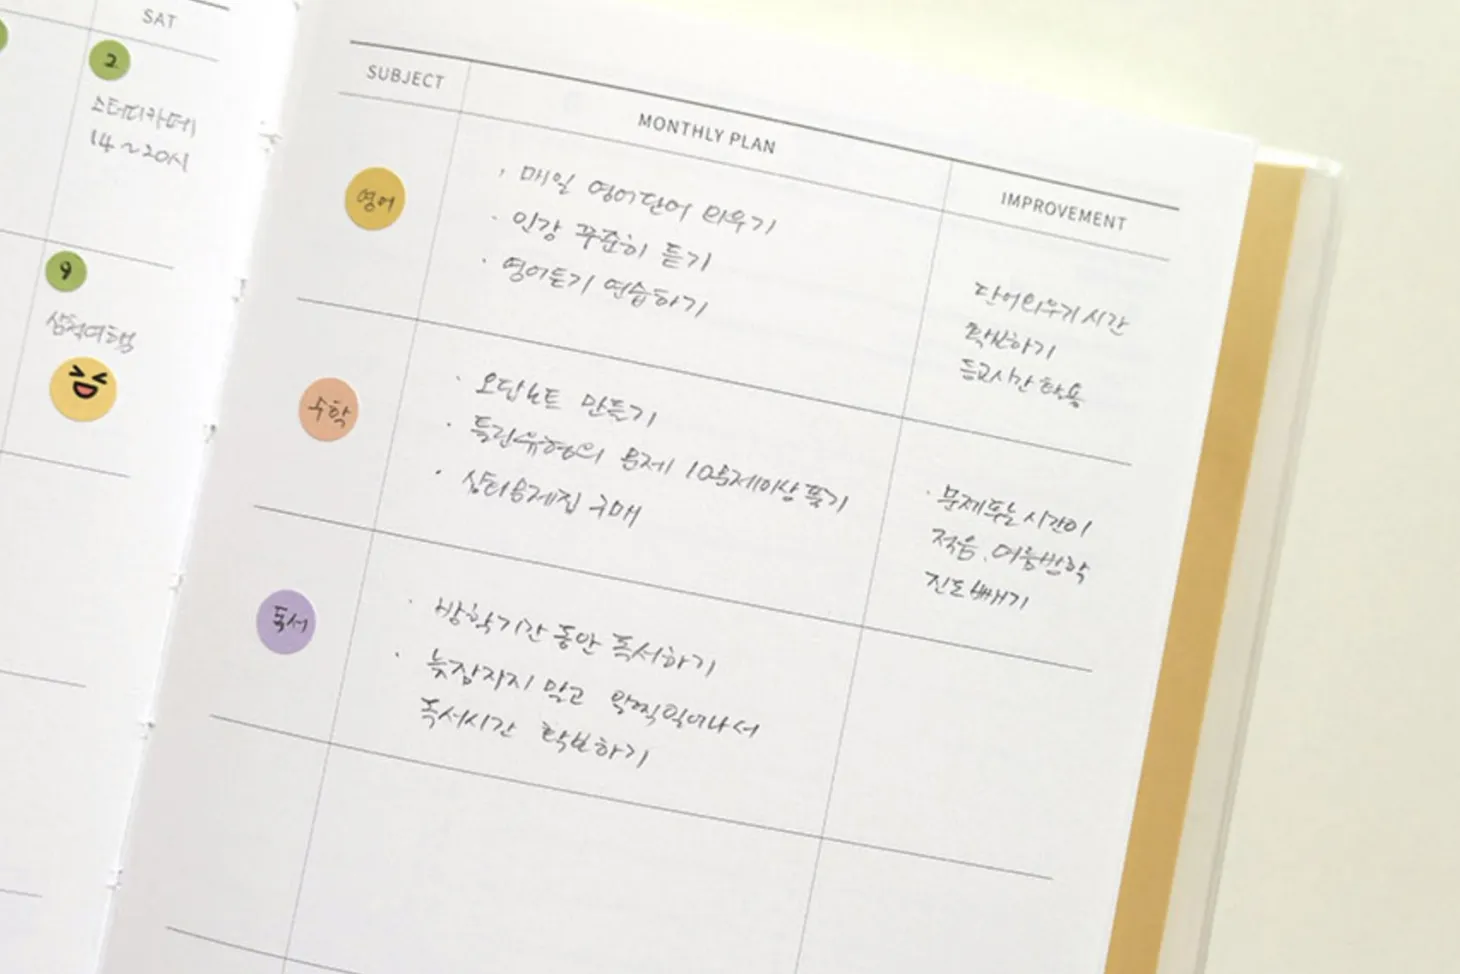 SAT
2
스터디카페
14 ~ 20시
9
삼척여행
SUBJECT
MONTHLY PLAN
IMPROVEMENT
영어
· 매일 영어단어 외우기
· 인강 꾸준히 듣기
· 영어듣기 연습하기
단어외우기 시간
확보하기
등교시간 활용
수학
· 오답노트 만들기
· 틀린유형의 문제 10문제이상 풀기
· 상위문제집 구매
· 문제푸는 시간이
적음. 여름방학
진도빼기
독서
· 방학기간 동안 독서하기
· 늦잠자지 말고 일어나서
독서시간 확보하기